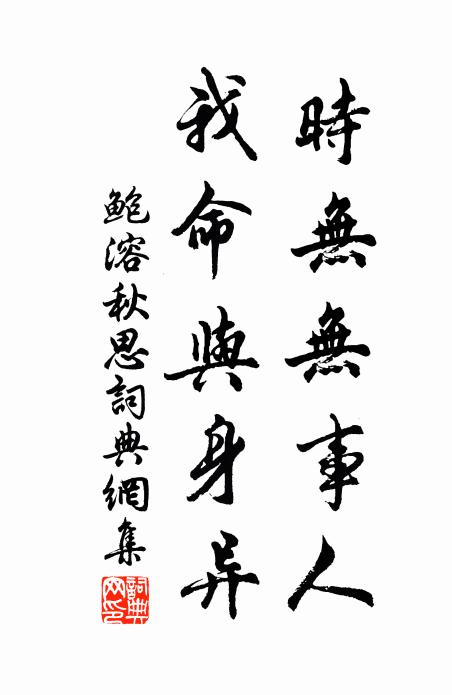 時無無事人
我命與身异
鲍溶秋思詞典網集
詞典網印